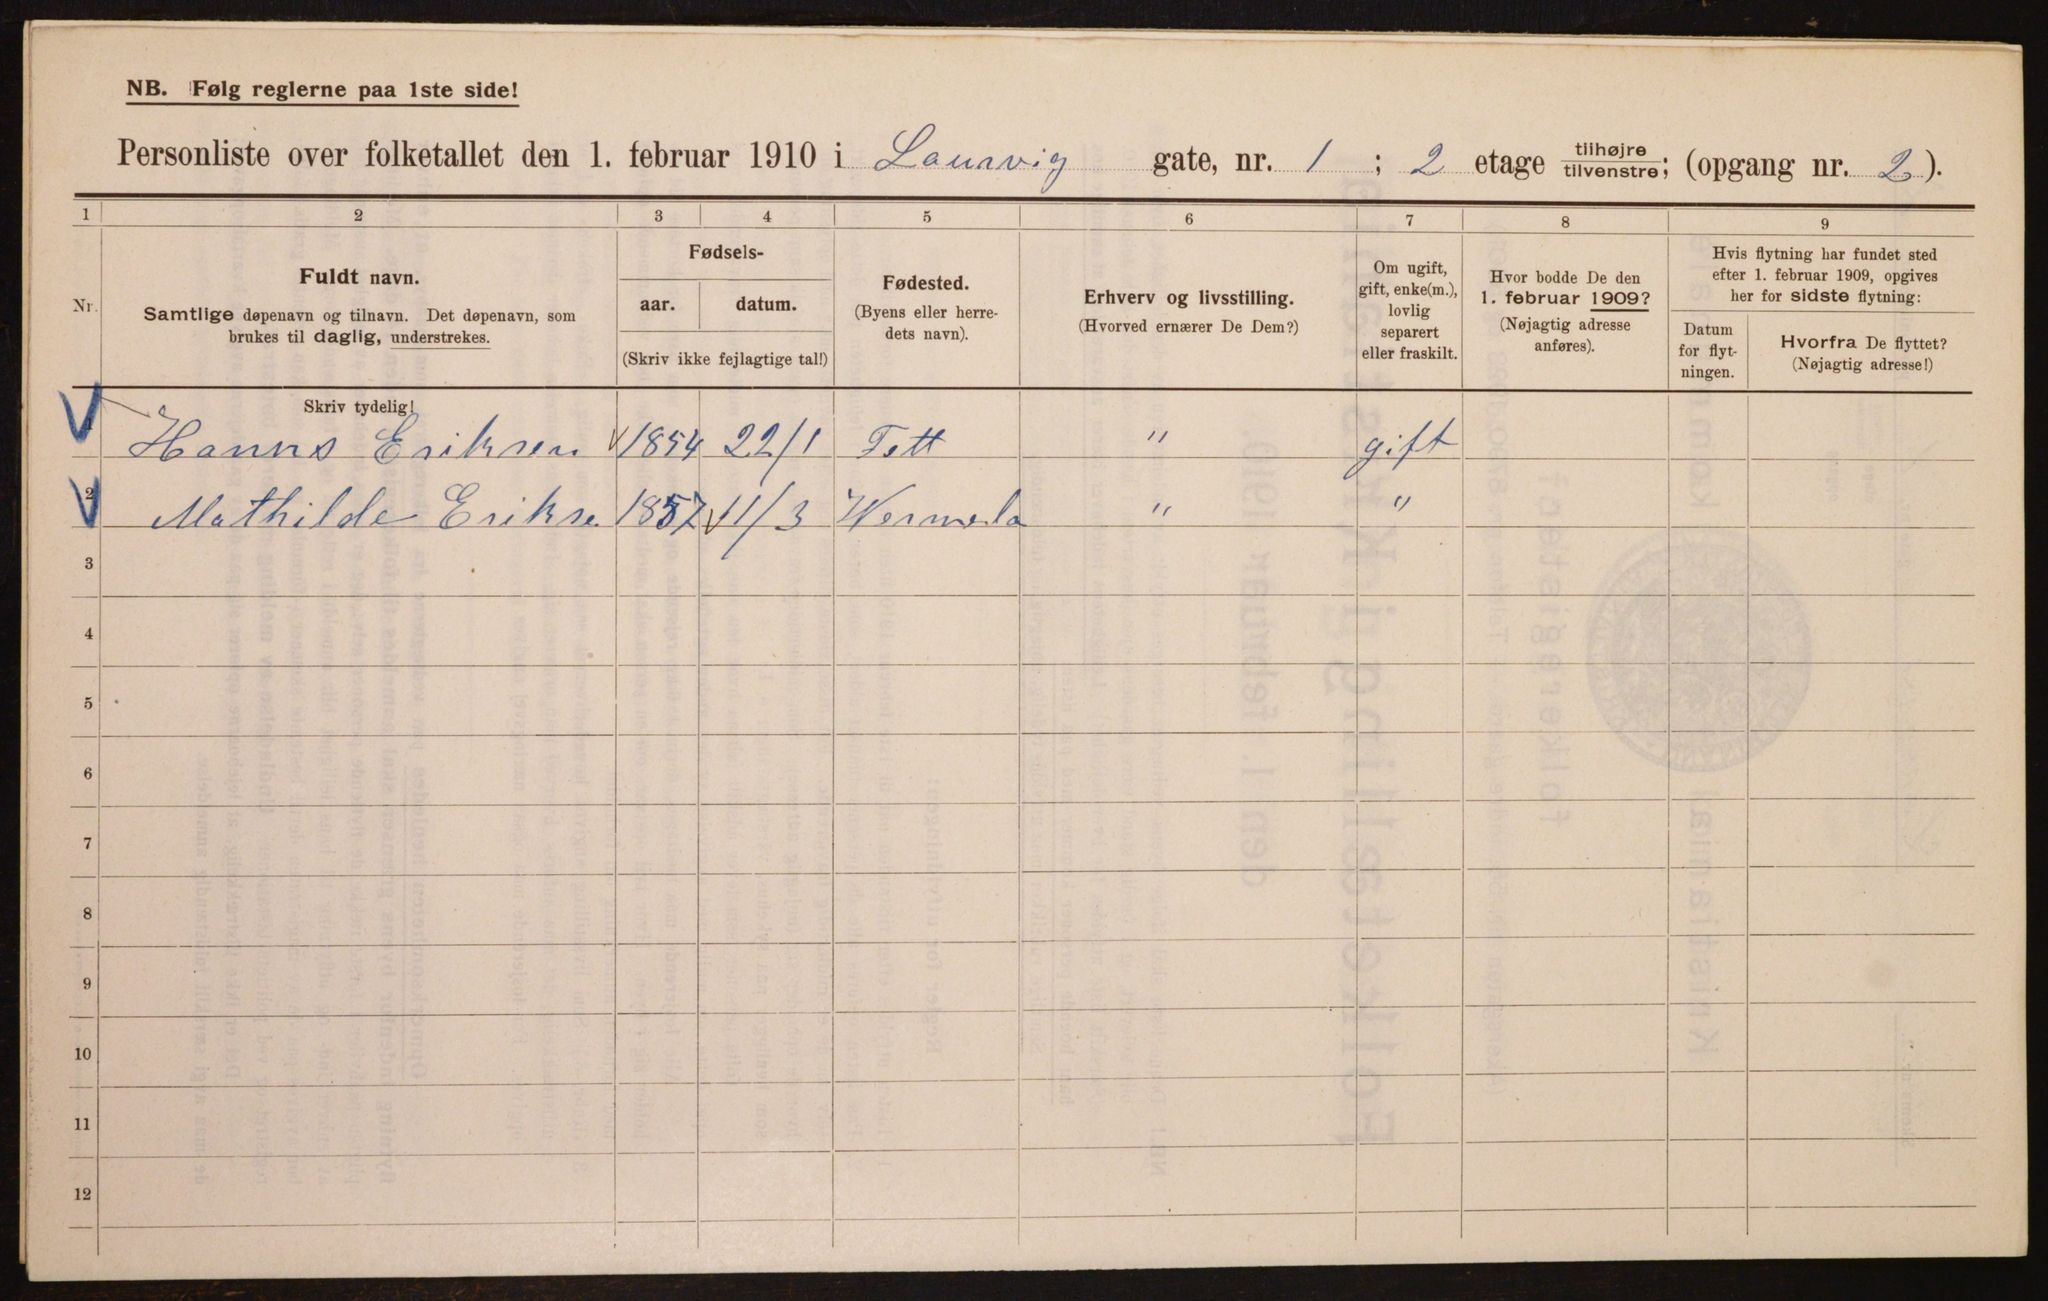 NB. Følg reglerne paa 1ste side!
Personliste over folketallet den 1. februar 1910 i Laurvig gate, nr. 1 ; 2 etage tilhøjre/tilvenstre; (opgang nr. 2).
1 2 3 4 5 6 7 8 9
Nr.
Fuldt navn.
Samtlige døpenavn og tilnavn. Det døpenavn, som
brukes til daglig, understrekes.
Fødsels-
aar. datum.
(Skriv ikke fejlagtige tal!)
Fødested.
(Byens eller herre-
dets navn).
Erhverv og livsstilling.
(Hvorved ernærer De Dem?)
Om ugift,
gift, enke(m.),
lovlig
separert
eller fraskilt.
Hvor bodde De den
1. februar 1909?
(Nøjagtig adresse
anføres).
Hvis flytning har fundet sted
efter 1. februar 1909, opgives
her for sidste flytning:
Datum
for flyt-
ningen.
Hvorfra De flyttet?
(Nøjagtig adresse!)
Skriv tydelig!
1 Hanns Eriksen 1854 22/1 Tott " gift
2 Mathilde Erikse 1857 11/3 Wermela " "
3
4
5
6
7
8
9
10
11
12